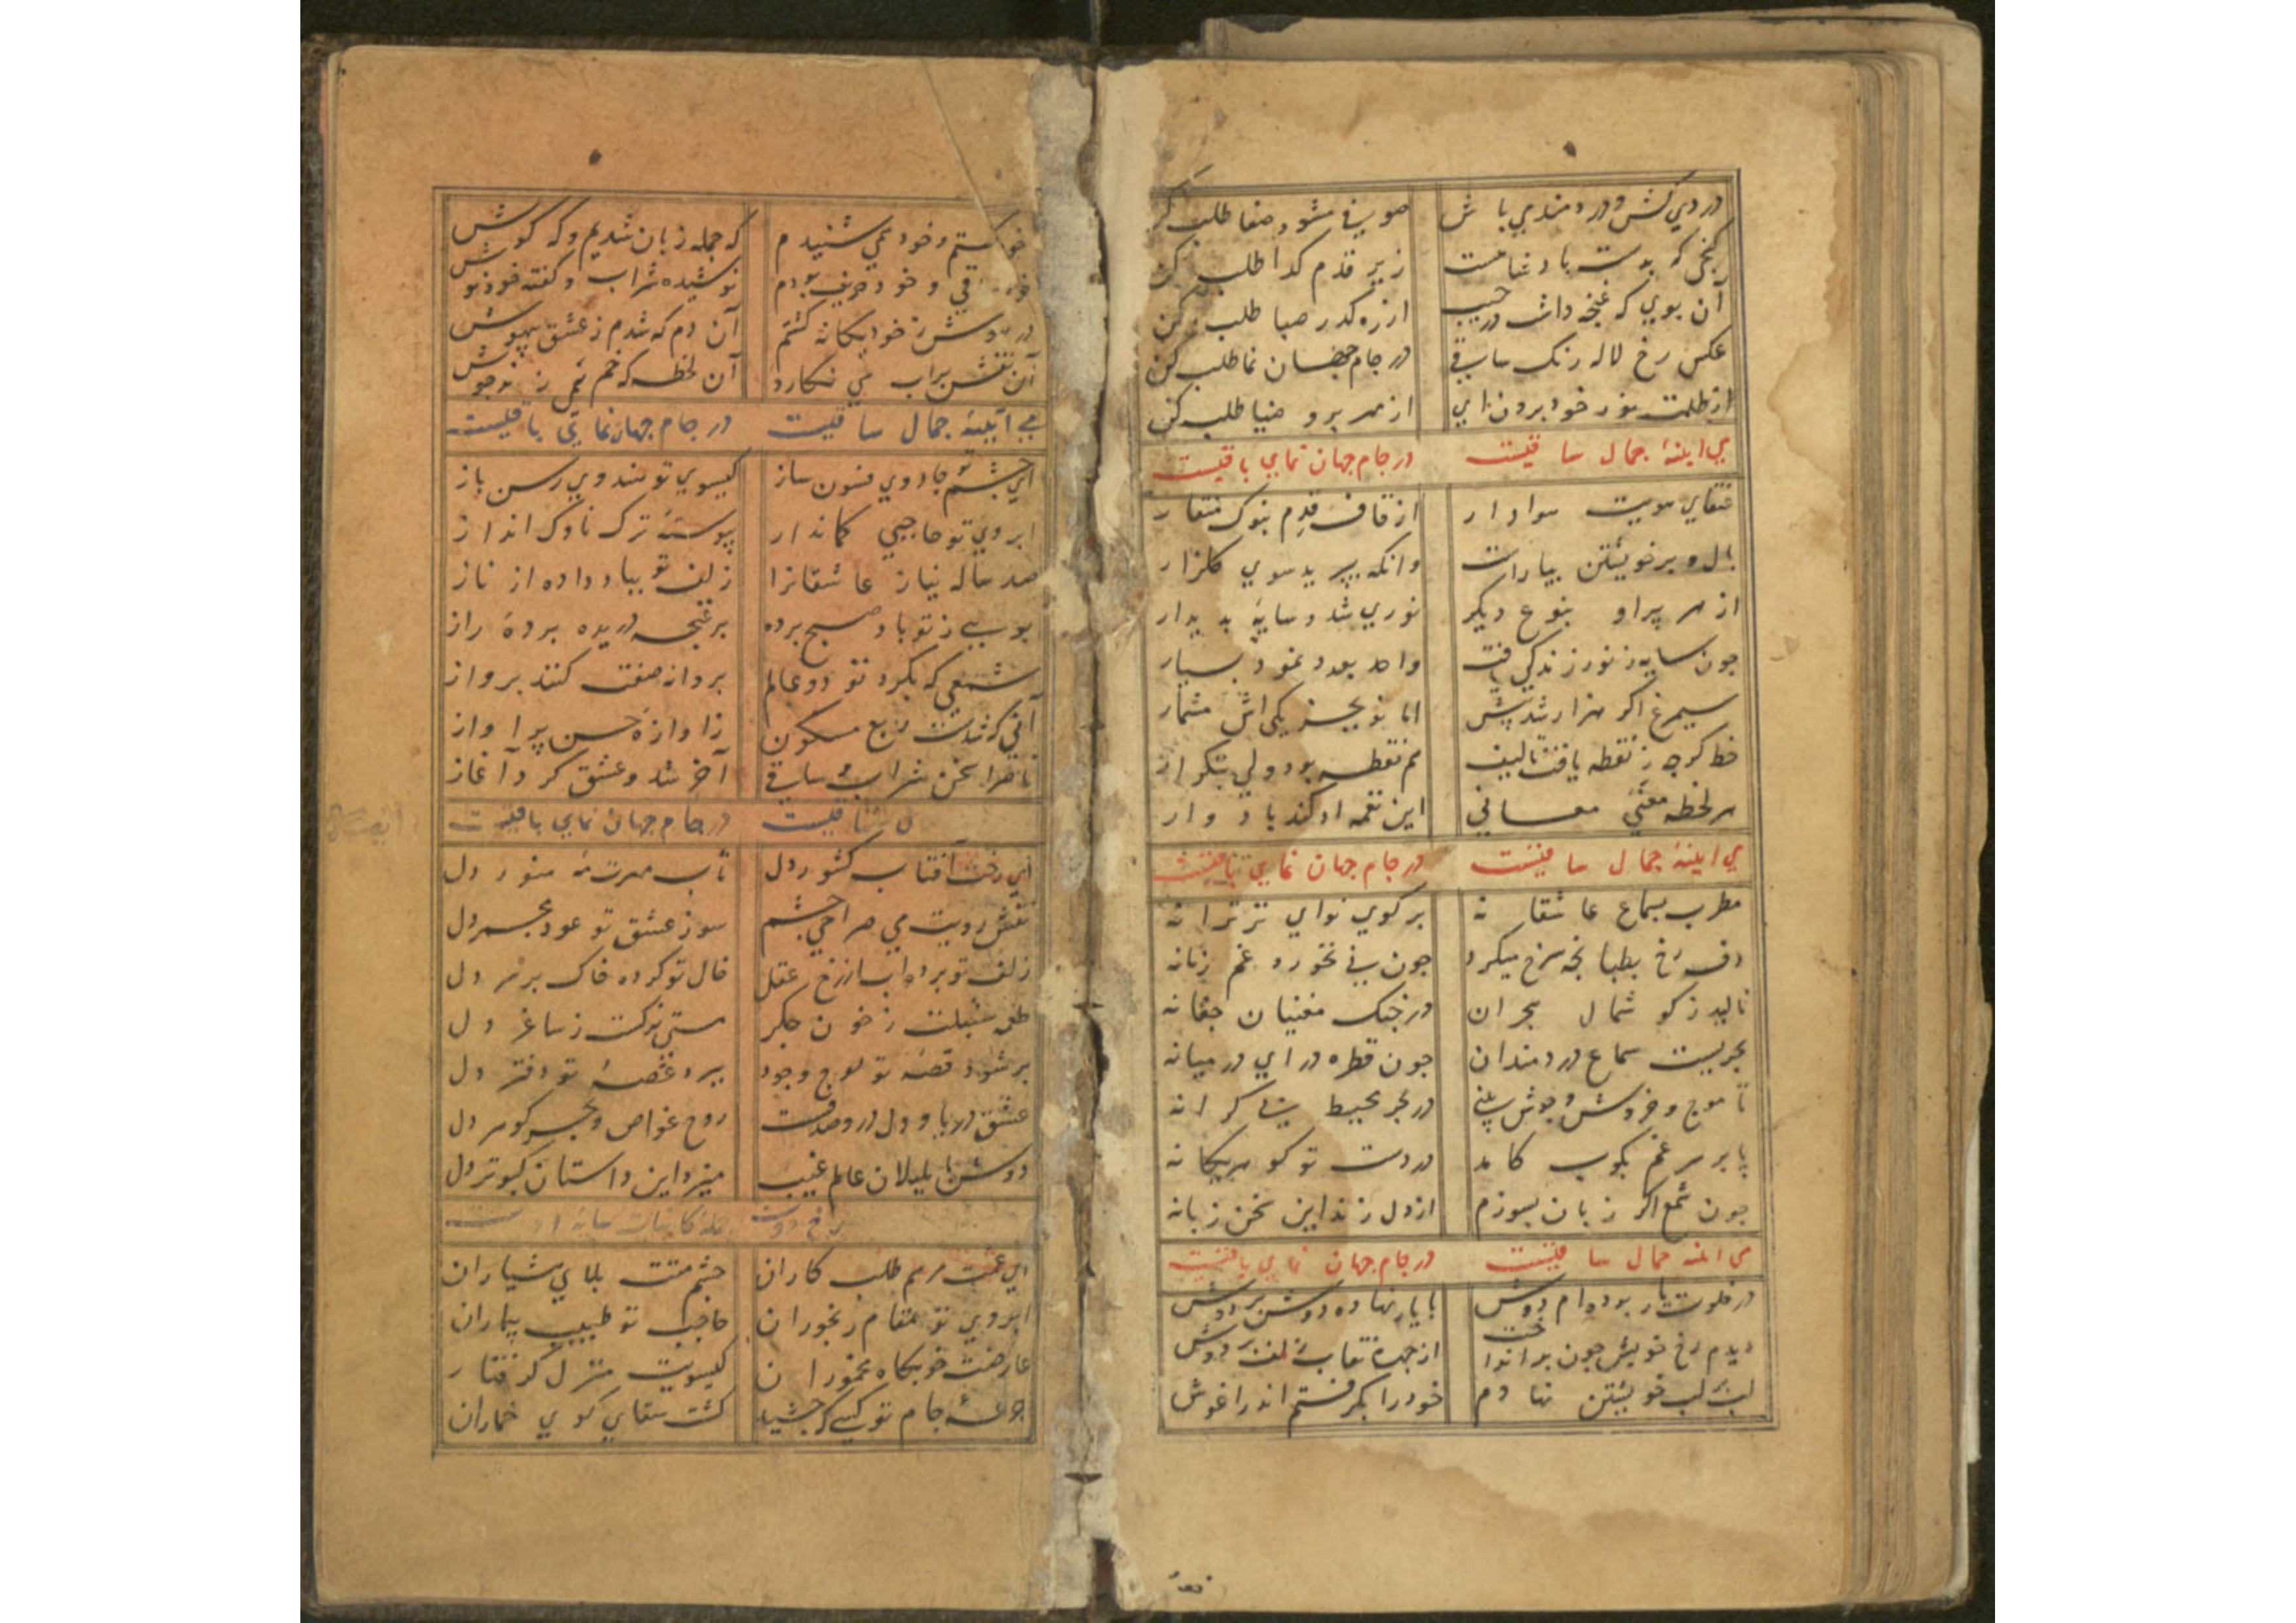 دردی کش و دردمند می باش صوفی مشو و صفا طلب کن
گنجی که بدست پادشا نیست زیر قدم گدا طلب کن
آن بوی که غنچه داشت در جیب از ره گذر صبا طلب کن
عکس رخ لاله رنگ ساقی در جام جهان نما طلب کن
از ظلمت خود برون آی از مهر برو ضیا طلب کن
می اینهٔ جمال ساقیست در جام جهان نمای باقیست
عنقای هویت هوادار از قاف قدم بنوک منقار
بال و پر خویشتن بیاراست وانکه بپرید سوی گلزار
از هر پر او بنوع دیگر نوری شد و سایهٔ پدیدار
جون سایه ز نور زندگی یافت واحد بعدد نمود بسیار
سیمرغ اگر هزار شد پیش اما تو بجز یکی اش مشمار
خط گرچه ز نقطه یافت تالیف هم نقطه بود ولی بتکرار
هر لحظه مغنی معانی این نغمه ادا کند باد وار
می اینهٔ جمال ساقیست در جام جهان نمای باقیست
مطرب بسماع عاشقانه بر کوی نوای تر ترانه
دف رخ بطبانجه سرخ میکرد جون نی نخورد غم زمانه
نالید ز گوشمال هجران در جنک مغنیان جغانه
بحریست سماع دردمندان جون قطره درآی در میانه
تا موج و خروش و جوش بینی در بحر محیط بی کرانه
پا بر سر غم بکوب کامد در دست تو گوهر یگانه
جون شمع اگر زبان بسوزم از دل زند این سخن زبانه
می اینهٔ جمال ساقیست در جام جهان نمای باقیست
در خلوت یار بوده ام دوش با یار نهاده دوش بر دوش
دیدم رخ خویش جون برانداخت از جهره نقاب زلف بر دوش
لب بر لب خویشتن نهادم خود را بگرفتم اندر اغوش
خود گفتم و خود همی شنیدم که جمله زبان شدیم و که گوش
خود ساقی و خود حریف بودم نوشیده شراب و گفته خود نوش
در رویش ز خود بیگانه گشتم آن دم که شدم ز عشق بیهوش
آن نقش براب می نگارد آن لحظه که خم می زند جوش
می آیینهٔ جمال ساقیست در جام جهان نمای باقیست
ای چشم تو جادوی فسون ساز گیسوی تو هندوی رسن باز
ابروی تو حاجبی کماندار پیوسته ترک ناوک انداز
صد ساله نیاز عاشقانرا زلف تو بباد داده از ناز
بویی ز تو باد صبح برده بر غنجه دریده پردهٔ راز
شمعی که بگرد تو دو عالم پروانه صفت کنند پرواز
آنی که شدست ربع مسکون ز اوازهٔ حسن پر اواز
ناصر سخن شراب و ساقی آخر شد و عشق کرد آغاز
ساقیست در جام جهان نمای باقیست
ای رخت آفتاب کشور دل تاب مهرت مه منور دل
نقش رویت می صراحی چشم سوز عشق تو عود مجمر دل
زلف تو برده اب از رخ عقل خال تو کرده خاک بر سر دل
طعمه سنبلت ز خون جگر مستی نرگست ز ساغر دل
بر شود قصهٔ تو لوح وجود ببرد غصهٔ تو دفتر دل
عشق دریا و دل درو صدفست روح غواص و بحر گوهر دل
دوش با بلبلان عالم غیب میزد این داستان کبوتر دل
رخ دوست کاینات سایهٔ اوست
ای غمت مرهم طلب کاران چشم مستت بلای هشیاران
ابروی تو مقام رنجوران حاجب تو طبیب بیماران
عارضت خوابگاه مخموران گیسویت منزل گرفتار
جرعهٔ جام تو کسی که چشید گشت سقای کوی خماران